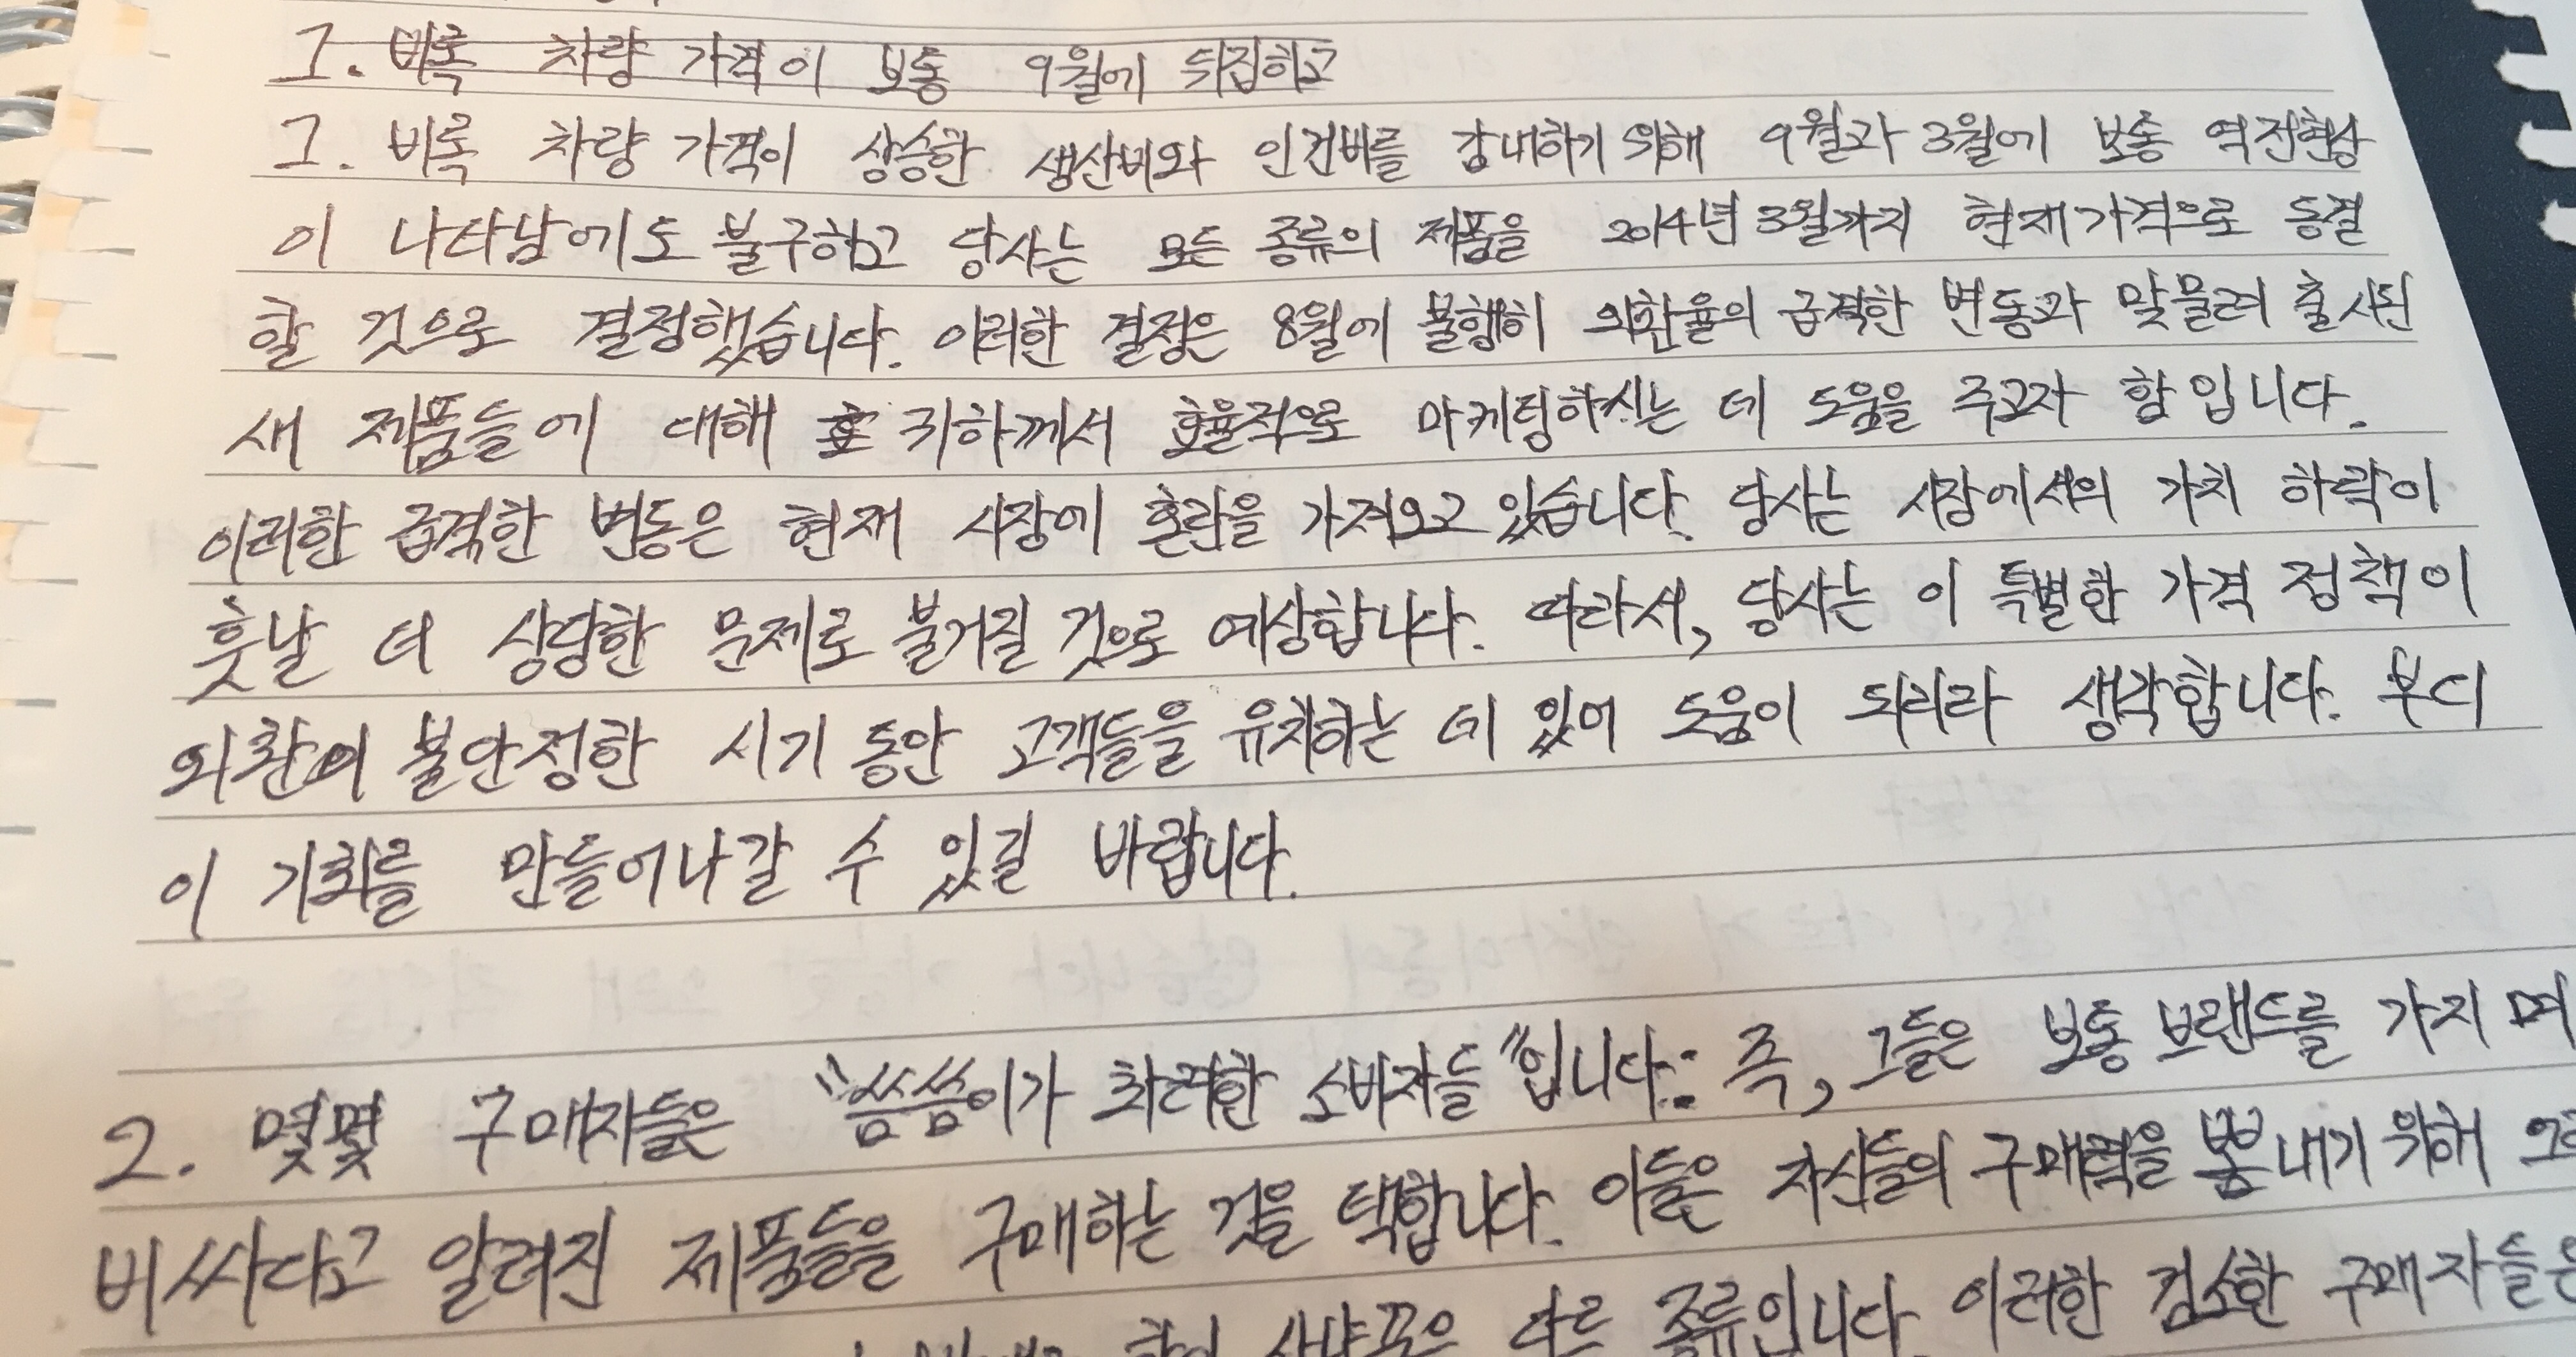 1. 비록 차량 가격이 보통 9월에 뒤집하고
1. 비록 차량 가격이 상승한 생산비와 인건비를 감내하기 위해 9월과 3월에 보통 역전현상
이 나타남에도 불구하고 당사는 모든 종류의 제품을 2014년 3월까지 현재가격으로 동결
할 것으로 결정했습니다. 이러한 결정은 8월에 불행히 외환율의 급격한 변동과 맞물려 출시된
새 제품들에 대해 귀하께서 효율적으로 마케팅하시는 데 도움을 주고자 함입니다.
이러한 급격한 변동은 현재 시장에 혼란을 가져오고 있습니다. 당사는 시장에서의 가치 하락이
훗날 더 상당한 문제로 불거질 것으로 예상합니다. 따라서, 당사는 이 특별한 가격 정책이
외환이 불안정한 시기 동안 고객들을 유치하는 데 있어 도움이 되리라 생각합니다. 부디
이 기회를 만들어나갈 수 있길 바랍니다.
2. 몇몇 구매자들은 "씀씀이가 화려한 소비자들"입니다: 즉, 그들은 보통 브랜드를 가지며
비싸다고 알려진 제품들을 구매하는 것을 택합니다. 이들은 자신들의 구매력을 뽐내기 위해
다른 종류입니다. 이러한 검소한 구매자들은